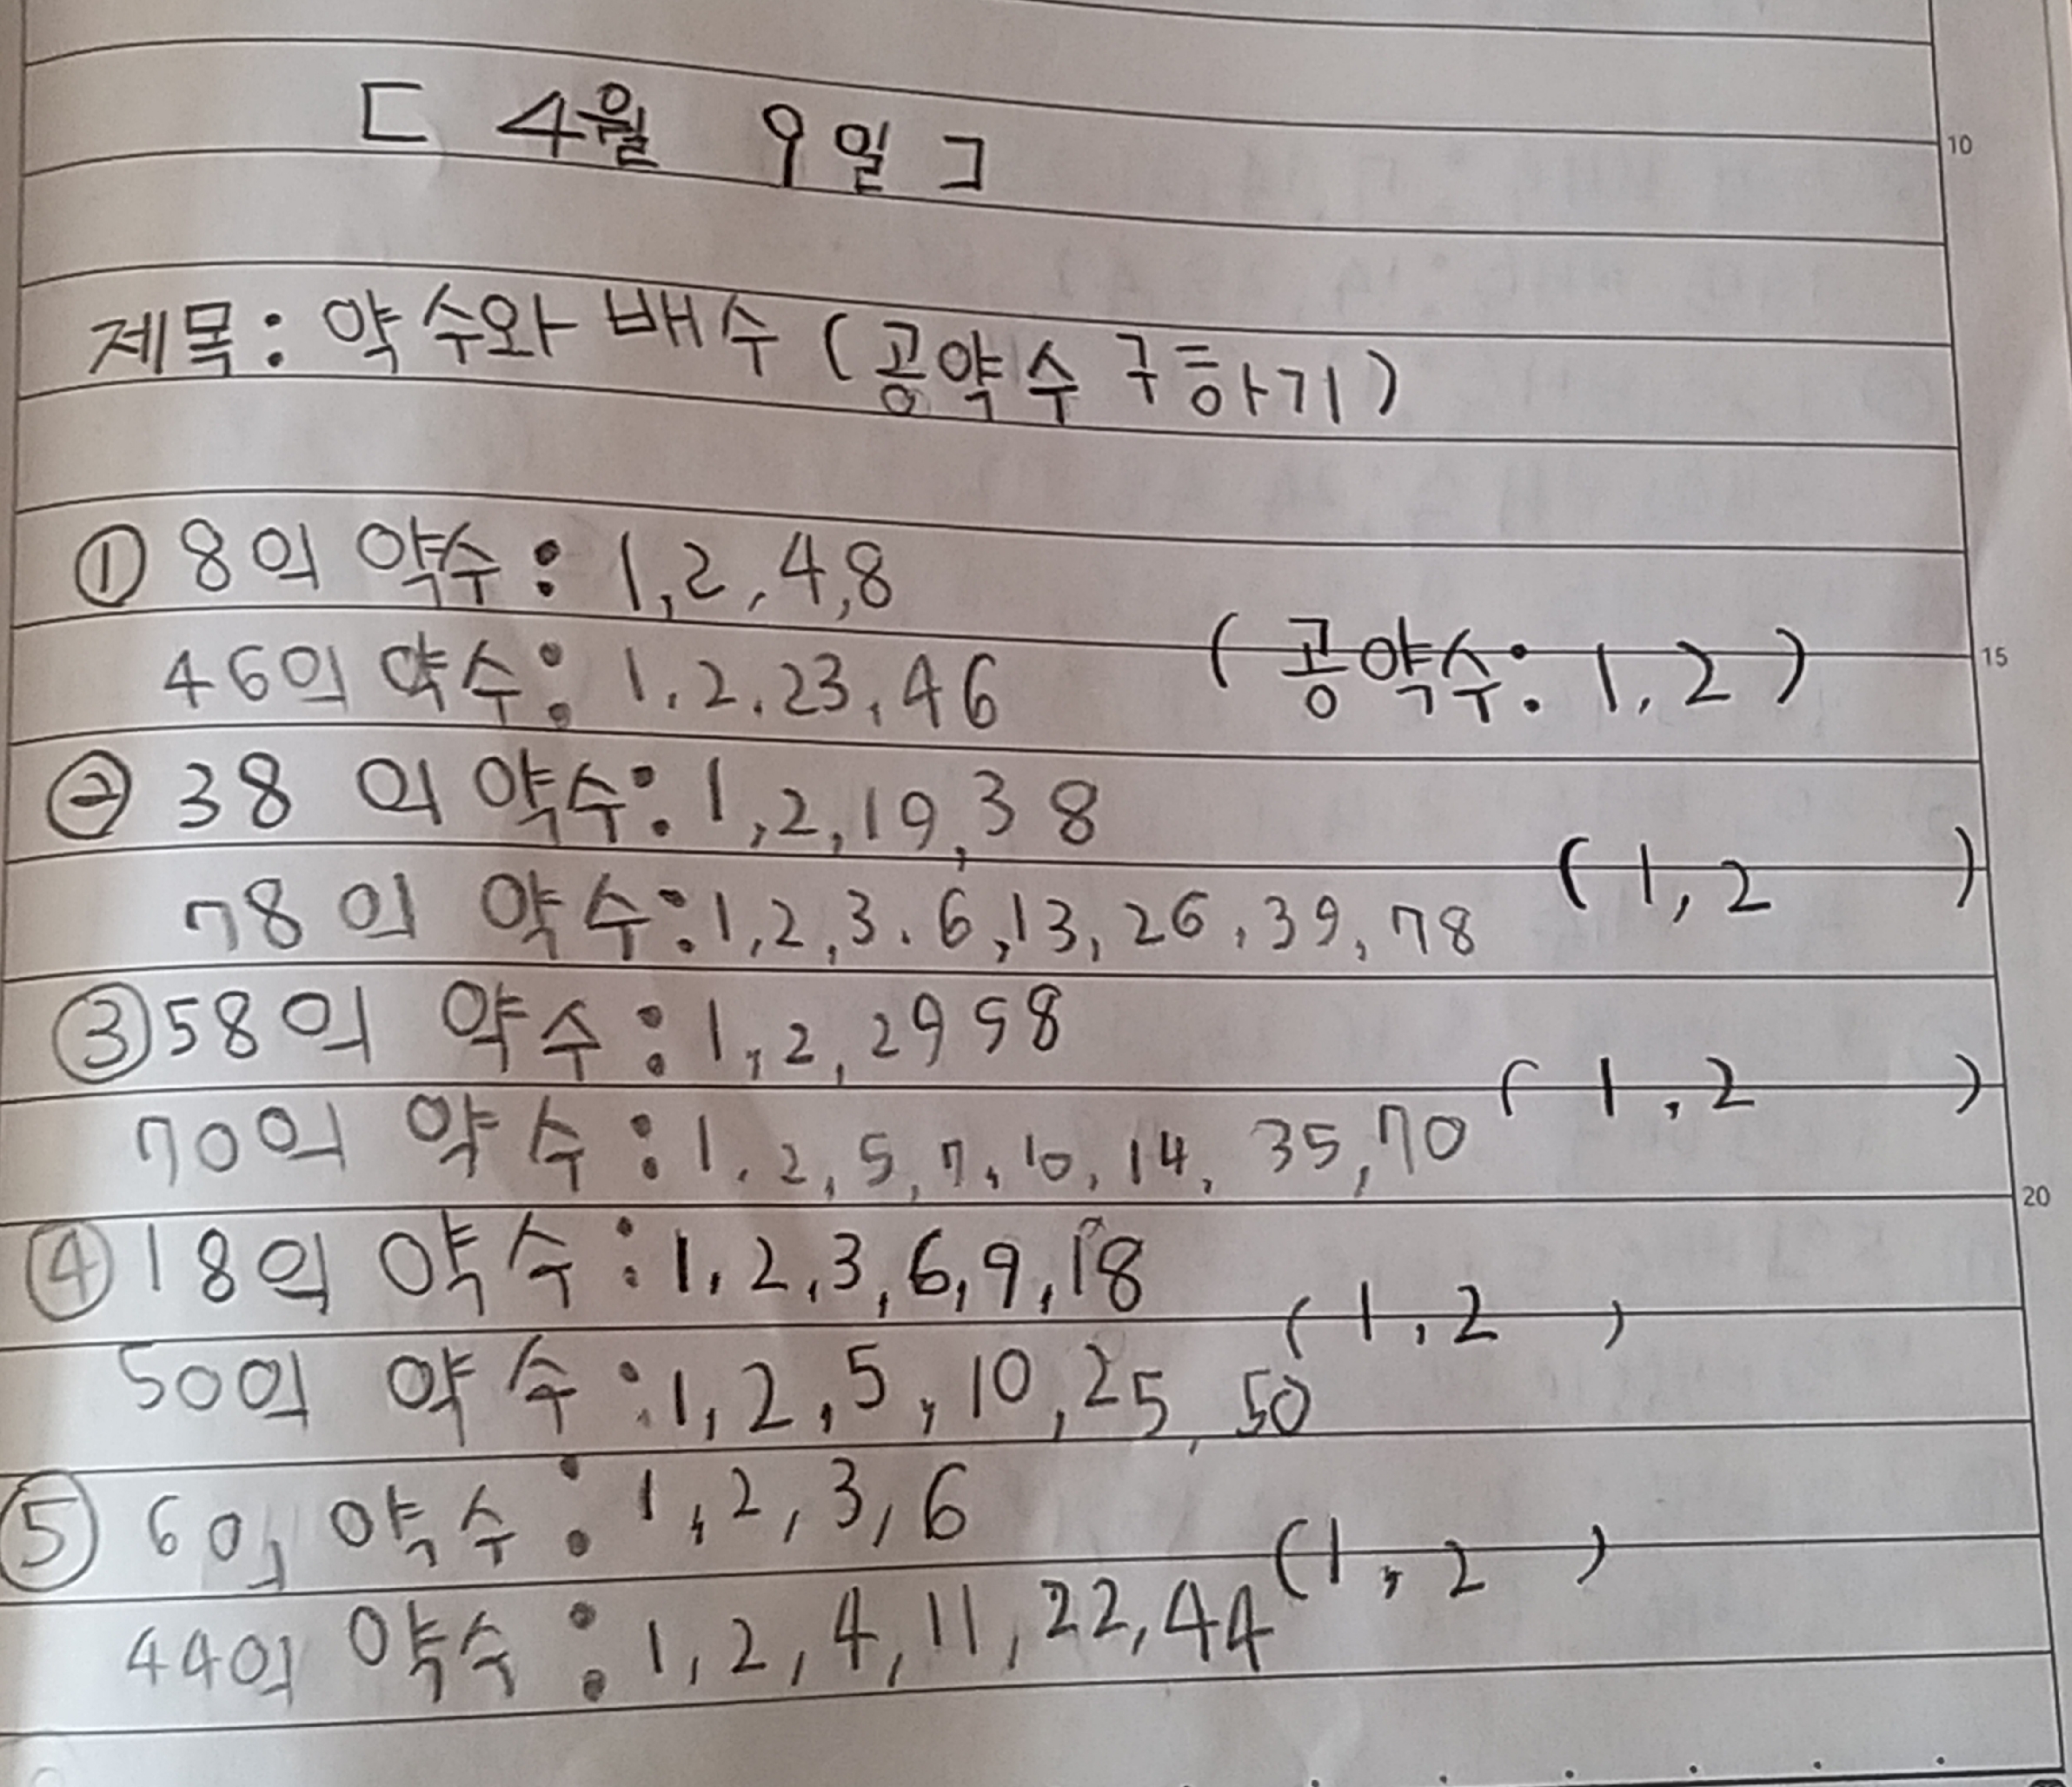 [ 4월 9일 ]
10
제목: 약수와 배수 (공약수 구하기)
① 8의 약수: 1,2,4,8
(공약수: 1,2)
15
46의 약수: 1,2,23,46
② 38의 약수: 1,2,19,38
(1,2)
78의 약수: 1,2,3,6,13,26,39,78
③ 58의 약수: 1,2,29 58
(1,2)
70의 약수: 1,2,5,7,10,14,35,70
20
④ 18의 약수: 1,2,3,6,9,18
(1,2)
50의 약수: 1,2,5,10,25,50
⑤ 6의 약수: 1,2,3,6
(1,2)
44의 약수: 1,2,4,11,22,44